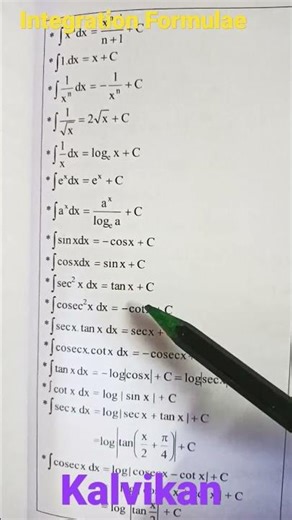 Integration Formulae
* ∫x dx = x / n+1 + C
* ∫1.dx = x + C
* ∫1/xⁿ dx = −1/xⁿ + C
* ∫1/√x = 2√x + C
* ∫1/x dx = logₑ x + C
* ∫eˣdx = eˣ + C
* ∫aˣdx = aˣ/logₑ a + C
* ∫sinxdx = −cosx + C
* ∫cosxdx = sinx + C
* ∫sec² x dx = tan x + C
* ∫cosec²x dx = −cotx + C
* ∫secx. tan x dx = secx +
* ∫cosecx.cotx dx = −cosecx
* ∫tan x dx = −log|cosx| + C = log|secx
* ∫cot x dx = log | sin x | + C
* ∫sec x dx = log|sec x + tan x| + C
= log|tan(x/2 + π/4)| + C
* ∫cosecx dx = log|cosecx − cot x| + C
x| + C
= log |tan x/2| + C
Kalvikan